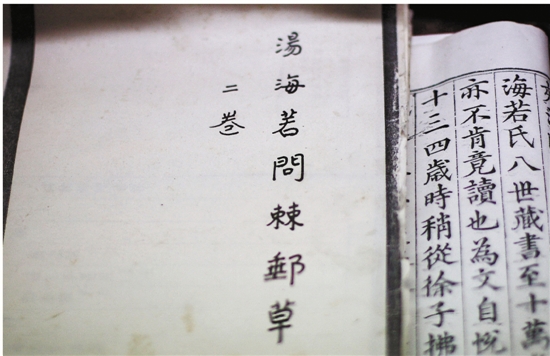 湯海若問棘郵草
二卷
海若氏八世藏書至十萬
亦不肯竟讀也為文自慨
十三四歲時稍從徐子拂